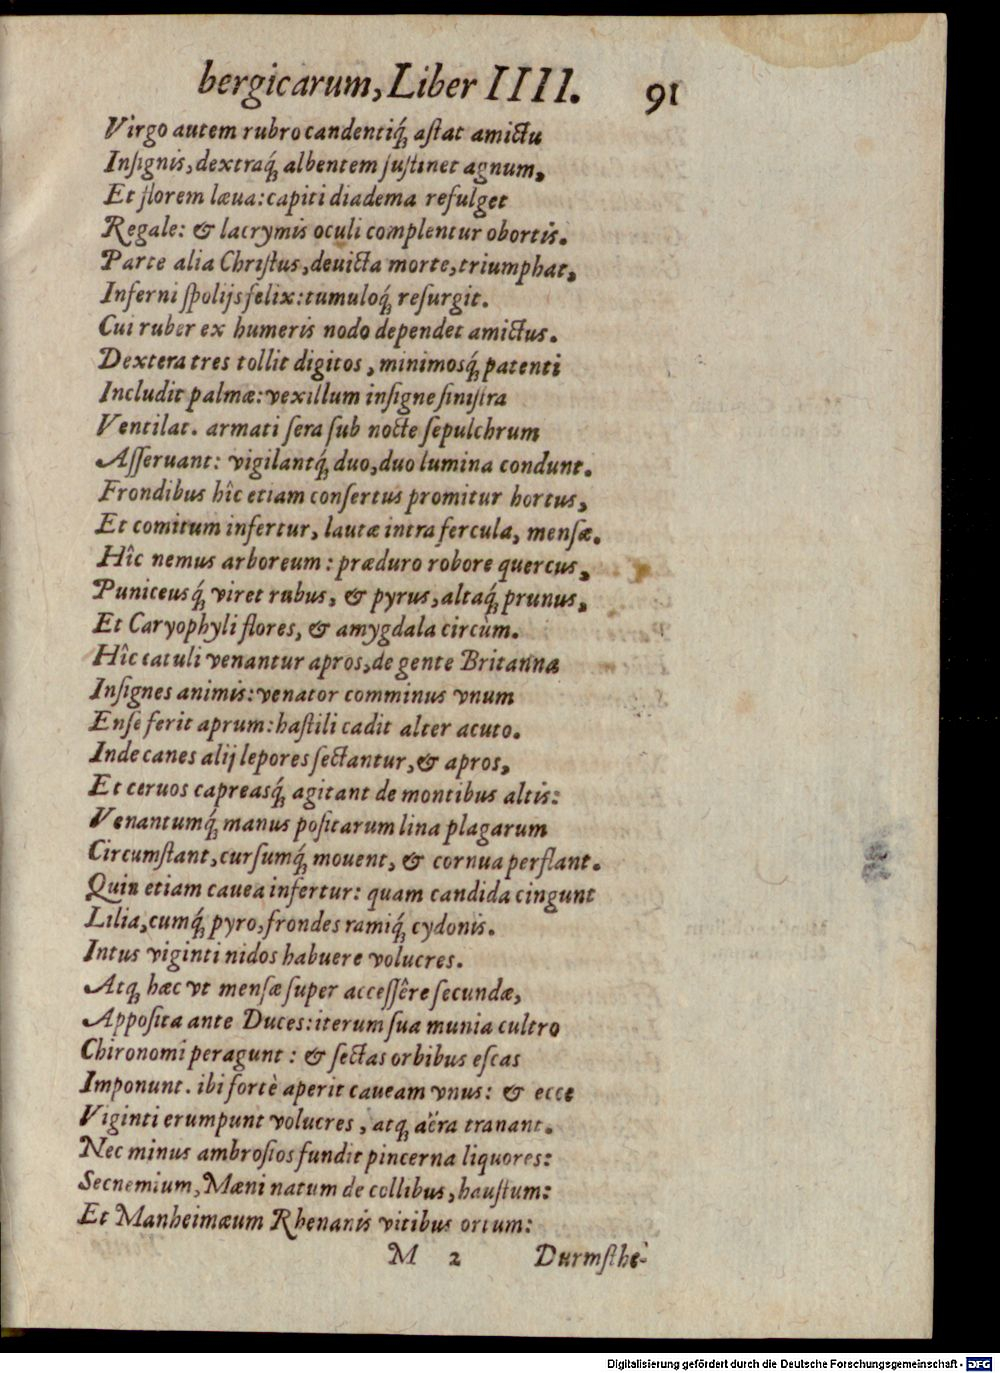 bergicarum, Liber IIII. 91
Virgo autem rubro candentiq́; aſtat amictu
Inſignis, dextraq́; albentem ſuſtinet agnum,
Et florem læua: capiti diadema refulget
Regale: & lacrymis oculi complentur obortis.
Parte alia Chriſtus, deuicta morte, triumphat,
Inferni ſpolijs felix: tumuloq́; reſurgit.
Cui ruber ex humeris nodo dependet amictus.
Dextera tres tollit digitos, minimosq́; patenti
Includit palmæ: vexillum inſigne ſiniſtra
Ventilat. armati ſera ſub nocte ſepulchrum
Aſſeruant: vigilantq́; duo, duo lumina condunt.
Frondibus hîc etiam conſertus promitur hortus,
Et comitum infertur, lautæ intra fercula, menſæ.
Hîc nemus arboreum: præduro robore quercus,
Puniceusq́; viret rubus, & pyrus, altaq́; prunus,
Et Caryophyli flores, & amygdala circùm.
Hîc catuli venantur apros, de gente Britanna
Inſignes animis: venator comminus vnum
Enſe ferit aprum: haſtili cadit alter acuto.
Inde canes alij lepores ſectantur, & apros,
Et ceruos capreasq́; agitant de montibus altis:
Venantumq́; manus poſitarum lina plagarum
Circumſtant, curſumq́; mouent, & cornua perflant.
Quin etiam cauea infertur: quam candida cingunt
Lilia, cumq́; pyro, frondes ramiq́; cydonis.
Intus viginti nidos habuere volucres.
Atq; hæc vt menſæ ſuper acceſſêre ſecundæ,
Appoſita ante Duces: iterum ſua munia cultro
Chironomi peragunt: & ſectas orbibus eſcas
Imponunt. ibi fortè aperit caueam vnus: & ecce
Viginti erumpunt volucres, atq; aëra tranant.
Nec minus ambroſios fundit pincerna liquores:
Secnemium, Mæni natum de collibus, hauſtum:
Et Manheimæum Rhenanis vitibus ortum:
M 2 Durmſthe-
Digitalisierung gefördert durch die Deutsche Forschungsgemeinschaft - DFG